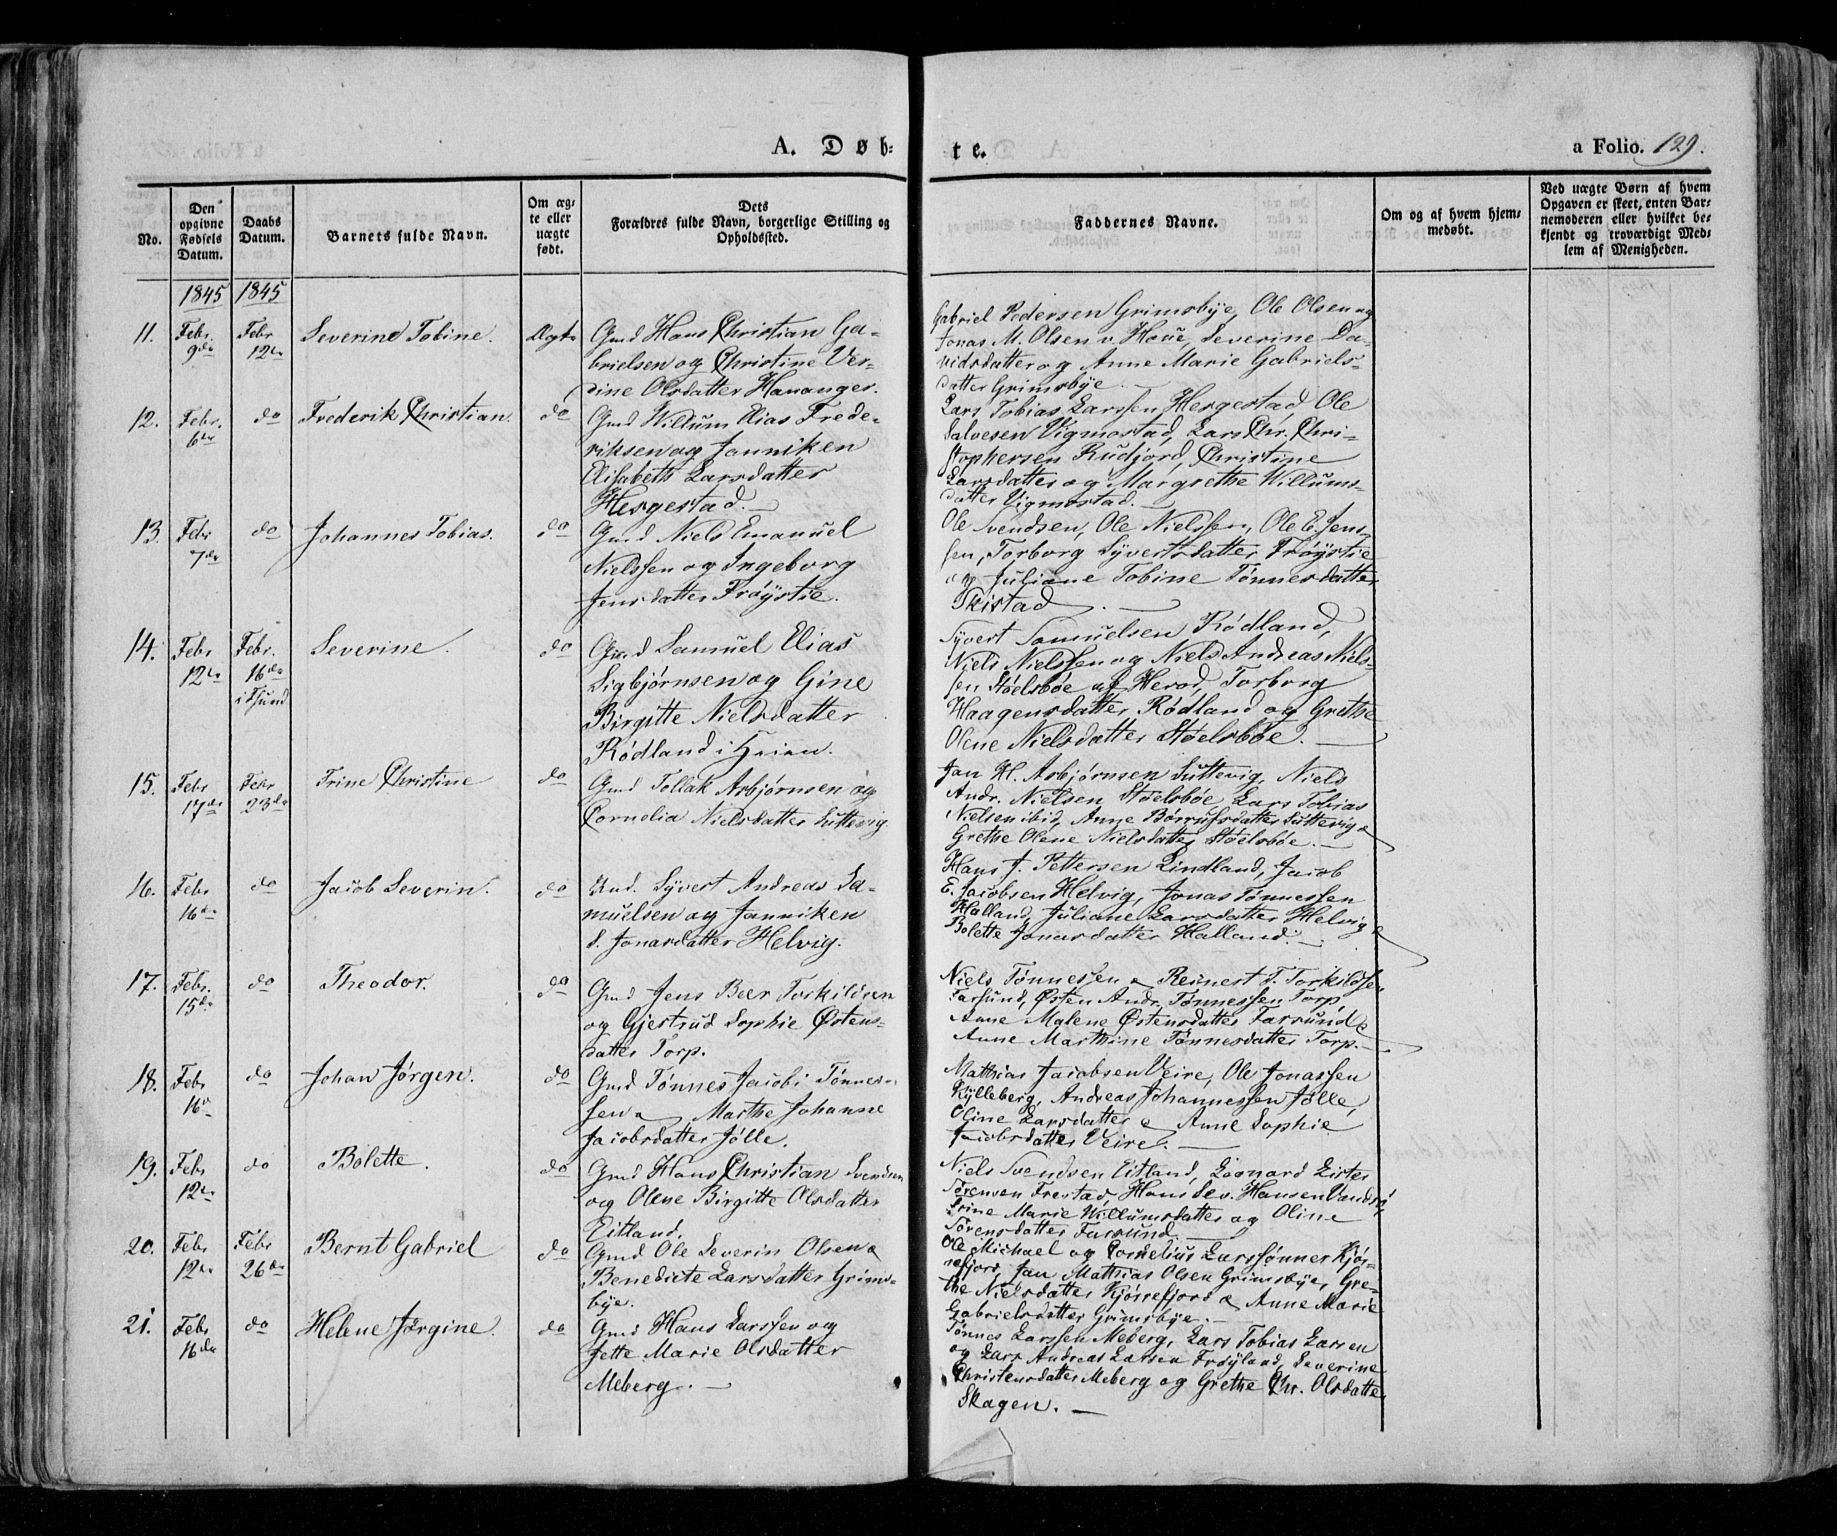 A. Døb=
te.
a Folio. 129.
No.
Den opgivne Fødsels Datum.
Daabs Datum.
Barnets fulde Navn.
Om æg= te eller uægte født.
Dets Forældres fulde Navn, borgerlige Stilling og Opholdssted.
Faddernes Navne.
Om og af hvem hjem= medøbt.
Ved uægte Børn af hvem Opgaven er skeet, enten Bar= nemoderen eller hvilket be= kjendt og troværdigt Med= lem af Menigheden.
1845 1845
11. Febr 9de Febr 12te Severine Tobine. Ægte
Gmd Hans Christian Ga-
brielsen og Christine Ver-
dine Olsdatter Hananger.
Gabriel Pedersen Grimsbye, Ole Olsen og
Jonas M. Olsen v. Haue, Severine Da-
vidsdatter og Anne Marie Gabriels-
datter Grimsbye.
12. Febr. 6te do Frederik Christian. do
Gmd Willum Elias Frede-
riksen og Janniken
Elisabeth Larsdatter
Hergestad.
Lars Tobias Larssen Hergestad, Ole
Salvesen Vigmostad, Lars Chr. Chri-
stophersen Rudjord, Christine
Larsdatter og Margrethe Willums-
datter Vigmostad.
13. Febr 7de do Johannes Tobias. do
Gmd Niels Emanuel
Nielssen og Ingeborg
Jensdatter Frøystie.
Ole Svendsen, Ole Nielssen, Ole E. Jens-
sen, Torborg Syvertsdatter Frøystie
og Juliane Tobine Tønnesdatter
Skistad.
14. Febr 12te Febr. 16de i Fsund Severine. do
Gmd Samuel Elias
Sigbjørnsen og Gine
Birgitte Nielsdatter
Rødland i Heien.
Syvert Samuelsen Rødland,
Niels Nielssen og Niels Andreas Niels-
sen Støelsbøe af Herod, Torborg
Haagensdatter Rødland og Grethe
Olene Nielsdatter Støelsbøe.
15. Febr 17de Febr 23de Trine Christine do
Gmd Tollak Asbjørnsen og
Cornelia Nielsdatter Luttevig
Jan H. Asbjørnsen Luttevig, Niels
Andr. Nielsen Støelsbøe, Lars Tobias
Nielsen ibid, Anne Børrufsdatter Luttevig &
Grethe Olene Nielsdatter Støelsbøe.
16. Febr 16de do Jacob Severin. do
Syvert Andreas Sa-
muelsen og Janniken
S. Jonasdatter Helvig.
Hans J. Pettersen Lindland, Jacob
E. Jacobsen Helvig, Jonas Tønnessen
Halland, Juliane Larsdatter Helvig &
Bolette Jonasdatter Halland.
17. Febr. 15de do Theodor. do
Gmd Jens Beer Torkildsen
og Gjertrud Sophie Østens-
datter Torp.
Niels Tønnessen & Reinert T. Torkildsen
Farsund, Østen Andr. Tønnessen Torp
Anne Malene Østensdatter Farsund &
Anne Marthine Tønnesdatter Torp.
18. Febr 16de do Johan Jørgen. do
Gmd Tønnes Jacobi Tønnes-
sen & Marthe Johanne
Jacobsdatter Jølle.
Mathias Jacobsen Veire, Ole Jonassen
Kylleberg, Andreas Johannessen Jølle,
Oline Larsdatter & Anne Sophie
Jacobsdatter Veire.
19. Febr 12te do Bolette. do
Gmd Hans Christian Svendsen
og Olene Birgitte Olsdatter
Eitland.
Niels Svendsen Eitland, Leonard Lister
Sørensen Frestad, Hans Sev. Hansen Vandsø,
Trine Marie Willumsdatter og Oline
Sørensdatter Farsund.
20. Febr 12te Febr 26de Bernt Gabriel do
Gmd Ole Severin Olsen &
Benedicte Larsdatter Grims-
bye.
Ole Michael og Cornelius Larssønner Kjør-
refjord, Jan Mathias Olsen Grimsbye, Gre-
the Nielsdatter Kjørrefjord & Anne Marie
Gabrielsdatter Grimsbye.
21. Febr 16de do Helene Jørgine. do
Gmd Hans Larssen og
Jette Marie Olsdatter
Meberg.
Tønnes Larssen Meberg, Lars Tobias Larsen
og Lars Andreas Larsen Frøyland, Severine
Christensdatter Meberg og Grethe Chr. Olsdatter
Skagen.